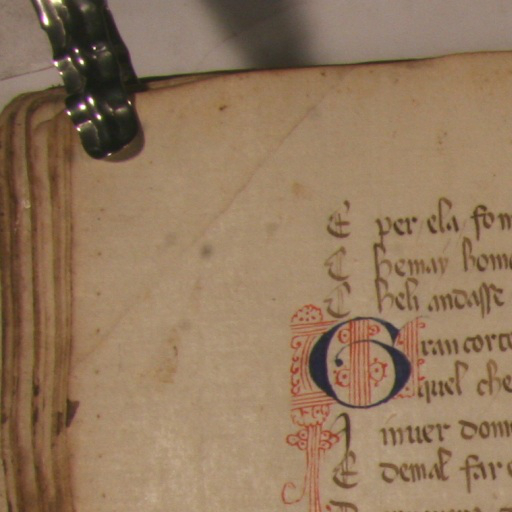 E per ela fom
C hemay hom
C heli andasse
Gran corte
quel che
A inuer donn
E demal far